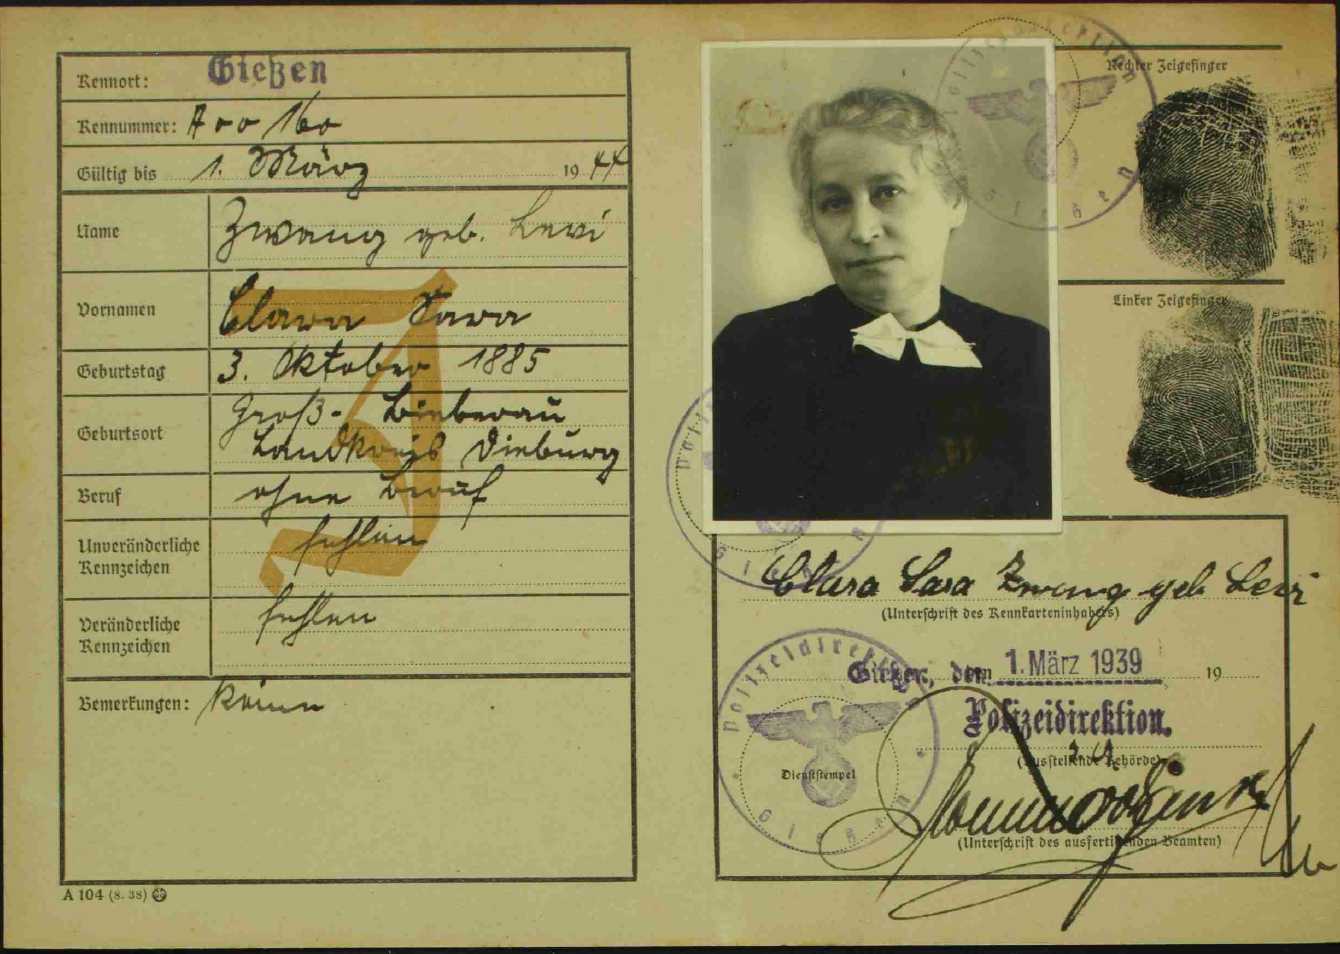 Kennort: Gießen
Kennummer: A 00 160
Gültig bis 1. März 1944
Name Zwang geb. Levi
Vornamen Clara Sara
Geburtstag 3. Oktober 1885
Geburtsort Groß-Bieberau
Landkreis Dieburg
Beruf ohne Beruf
Unveränderliche Kennzeichen fehlen
Veränderliche Kennzeichen fehlen
Bemerkungen: keine
A 104 (8. 38)
J
Polizeidirektion
Gießen
Rechter Zeigefinger
Linker Zeigefinger
Polizeidirektion
Gießen
Clara Sara Zwang geb Levi
(Unterschrift des Kennkarteninhabers)
Gießen, den 1. März 1939 19
Polizeidirektion.
(Ausstellende Behörde)
Polizeidirektion
Dienststempel
Gießen
(Unterschrift des ausfertigenden Beamten)